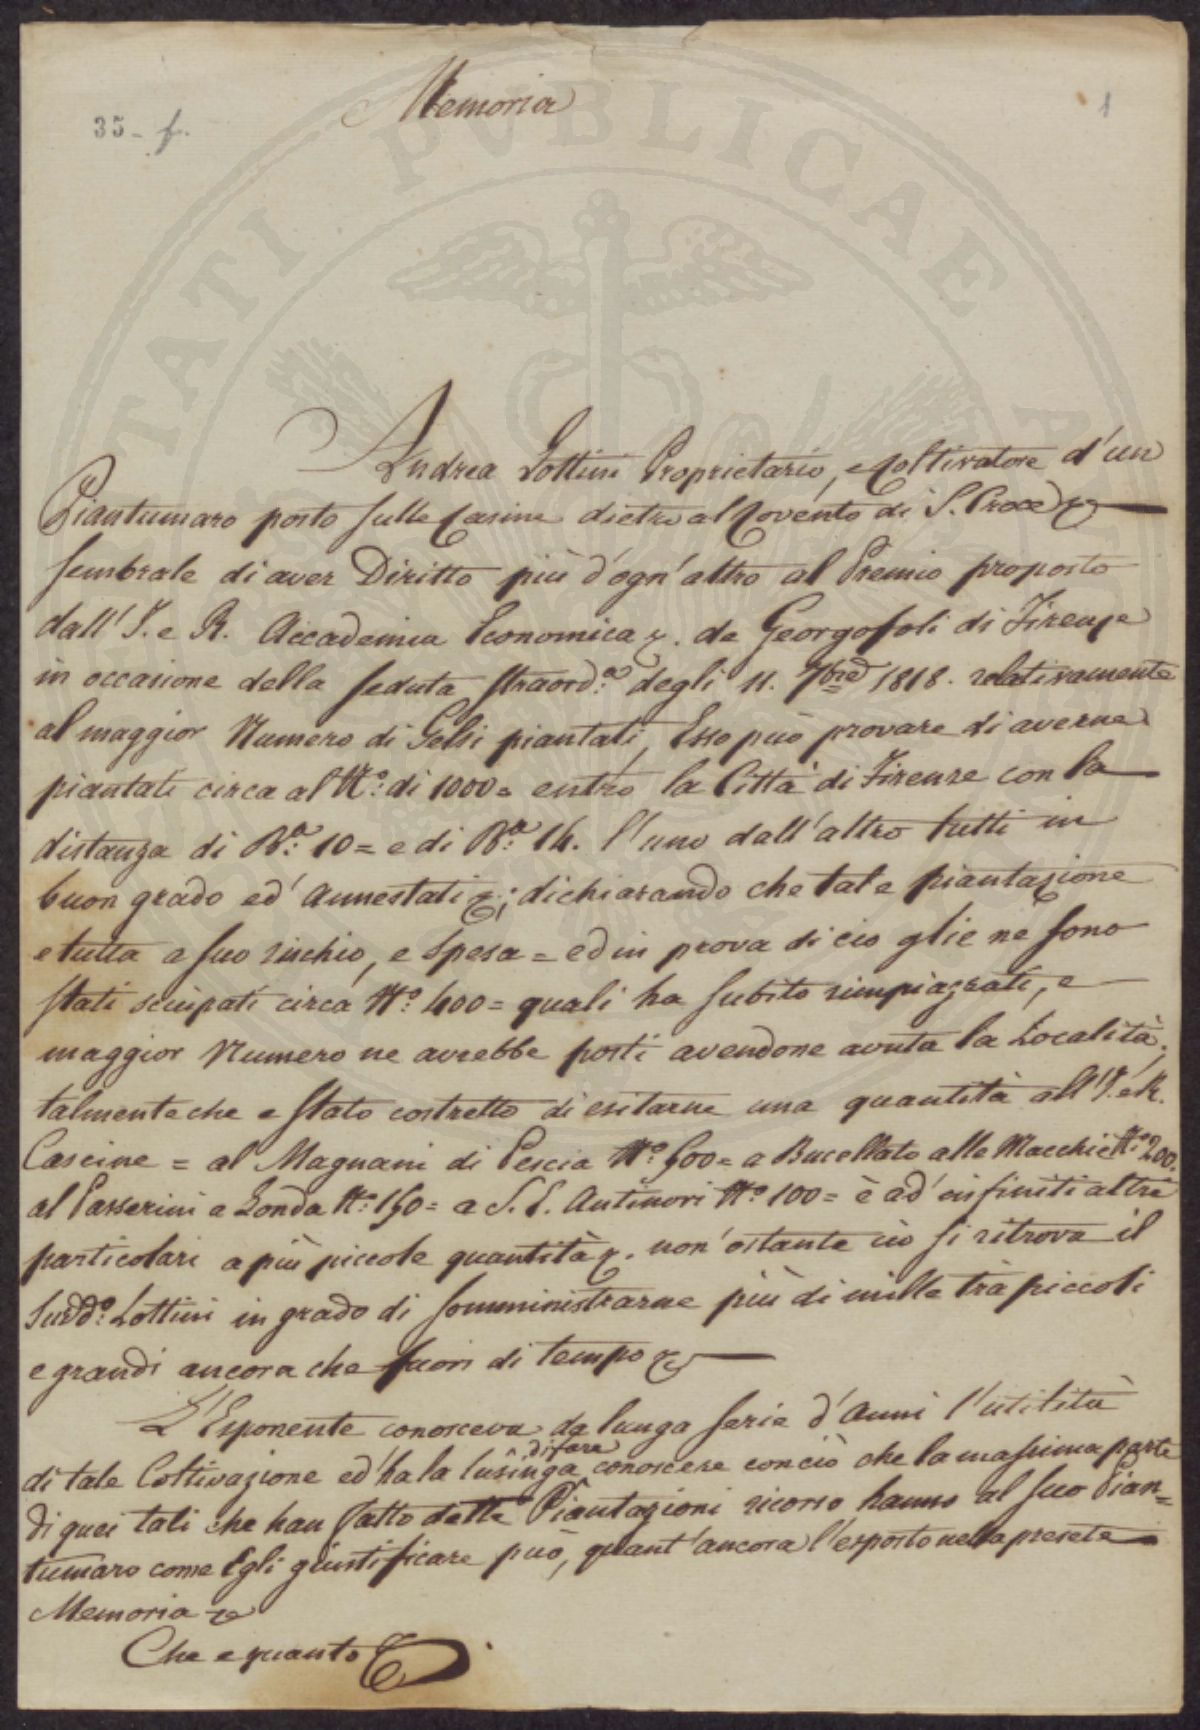 Memoria
1
35 - f.
Andrea Lottini Proprietario, e Coltivatore d'un
Piantumaro posto sulle Casine dietro al Covento di S. Croce &
sembrale di aver Diritto più d'ogn'altro al Premio proposto
dall'I. e R. Accademia Economica &. de Georgofoli di Firenze
in occasione della seduta straord.ª degli 11. 7bre 1818. relativamente
al maggior Numero di Gelsi piantati, Esso può provare di averne
piantati circa al N.º di 1000 = entro la Città di Firenze con la
distanza di B.ª 10 = e di B.ª 14. l'uno dall'altro tutti in
buon grado ed' annestati &; dichiarando che tale piantazione
e tutta a suo rischio, e spesa = ed in prova di cio glie ne sono
stati sciupati circa N.º 400 = quali ha subito rimpiazzati, e
maggior Numero ne avrebbe posti avendone avuta la Località;
talmente che e stato costretto di esitarne una quantità all'I. e R.
Cascine = al Magnani di Pescia N.º 600 = a Bucellato alle Macchie N.º 200.
al Passerini a Londa N.º 150 = a S. E. Antinori N.º 100 = è ad' infiniti altri
particolari a più piccole quantità &. non'ostante ciò si ritrova il
Sudd.º Lottini in grado di somministrarne più di mille trà piccoli
e grandi ancora che fuori di tempo &
L'Esponente conosceva da lunga serie d'Anni l'utilità
di tale Coltivazione ed' ha la lusinga di fare conoscere con ciò che la massima parte
di quei tali che han fatto dette Piantazioni ricorso hanno al suo Pian=
tumaro come Egli giustificare può, quant'ancora l'esposto nella presete
Memoria &
Che e quanto &
PVBLICAE